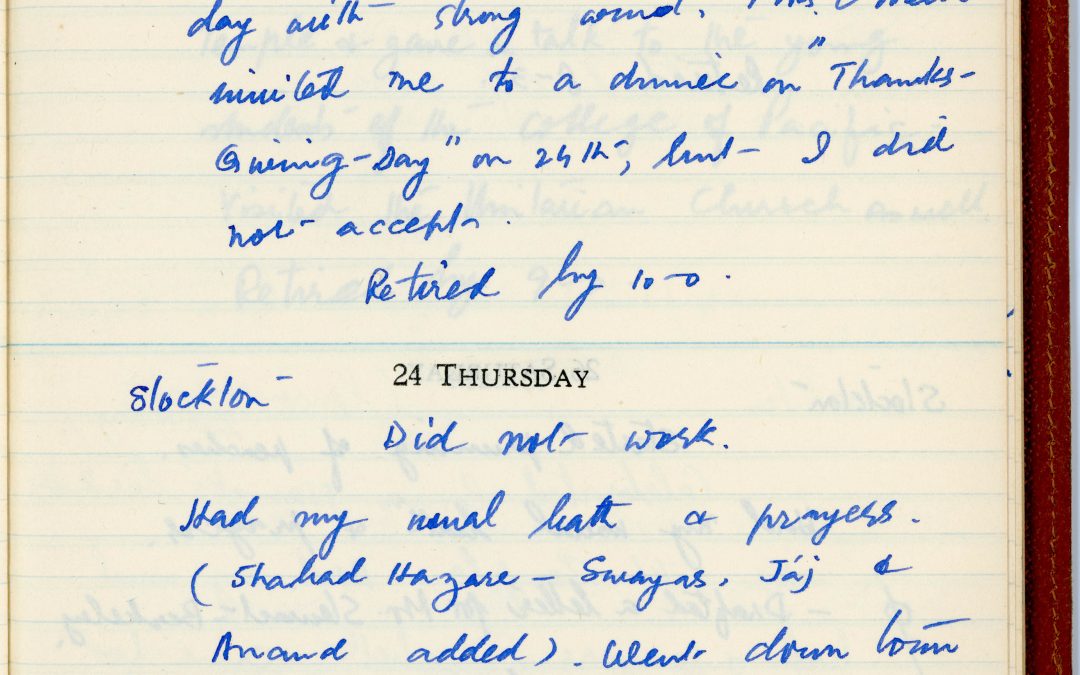 day with strong wind. Mrs.
invited me to a dinner on "Thanks-
Giving-Day" on 24th, but I did
not accept.
Retired by 10-0.
24 THURSDAY
Stockton
Did not work.
Had my usual bath & prayers.
(Shabad Hazare - Swayas, Jáj &
Anand added). Went down town